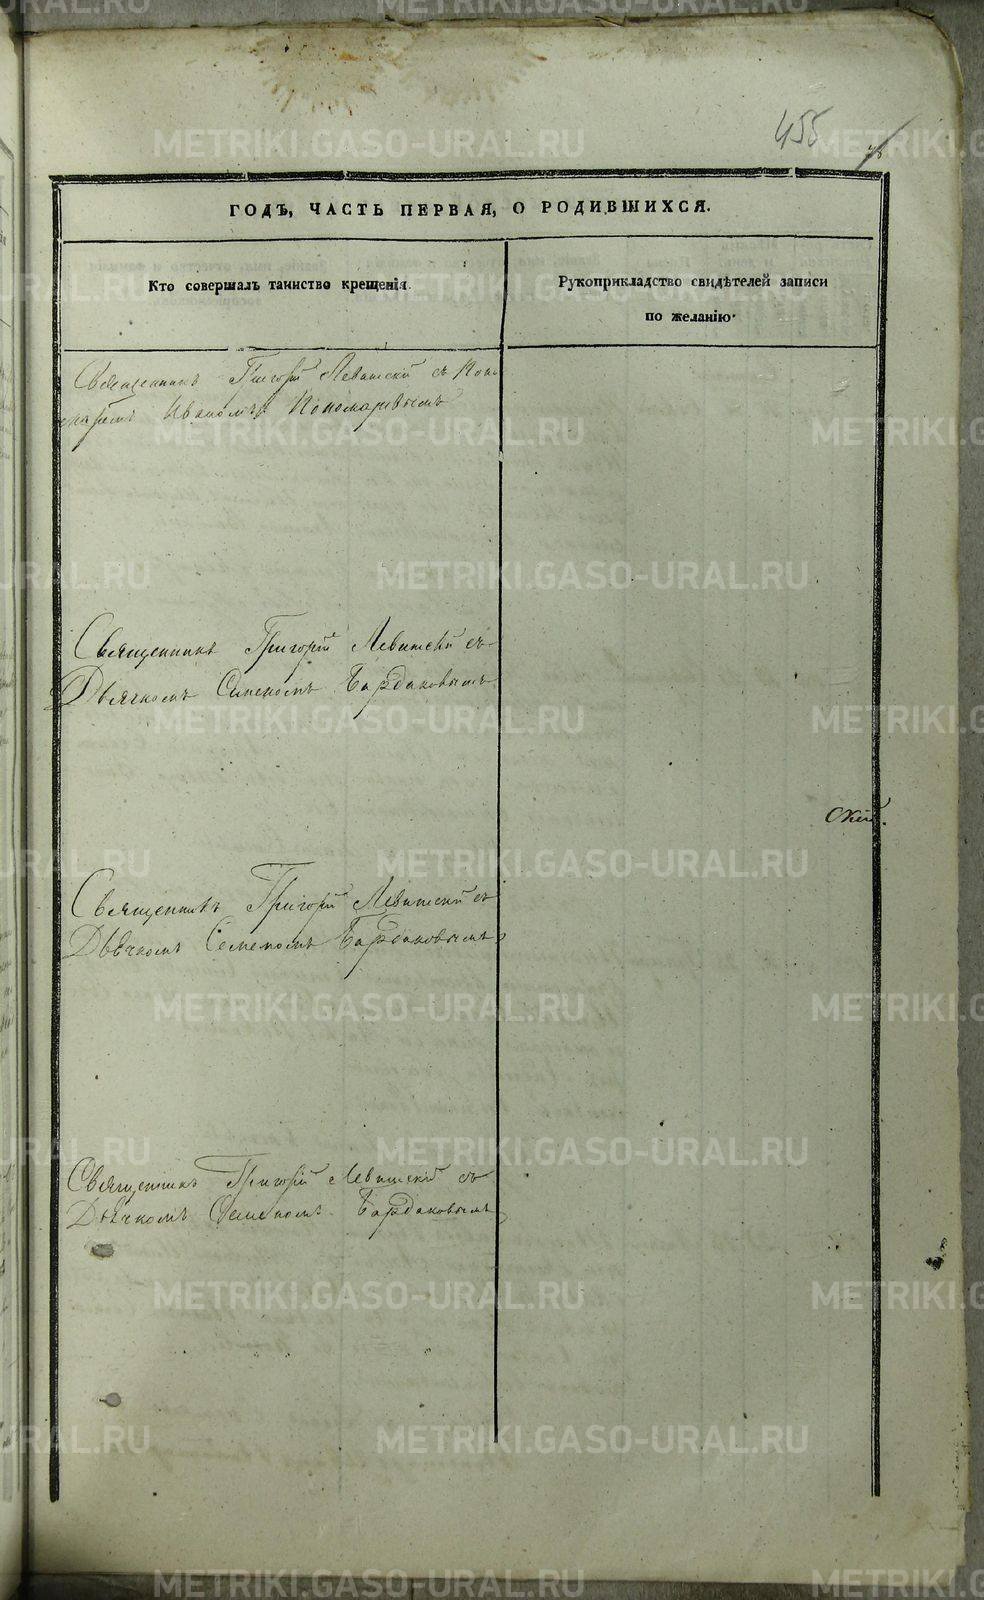 455
ГОДЪ, ЧАСТЬ ПЕРВАЯ, О РОДИВШИХСЯ.
Кто совершалъ таинство крещенія.
Рукоприкладство свидѣтелей записи
по желанію.
Священникъ Григорій Левитскій съ Поно-
маремъ Иваномъ Пономаревымъ
Священникъ Григорій Левитскій съ
Дьячкомъ Симеономъ Бардаковымъ
скій.
Священникъ Григорій Левитскій съ
Дьячкомъ Семеномъ Бардаковымъ
Священникъ Григорій Левитскій съ
Дьячкомъ Семеномъ Бардаковымъ
METRIKI.GASO-URAL.RU